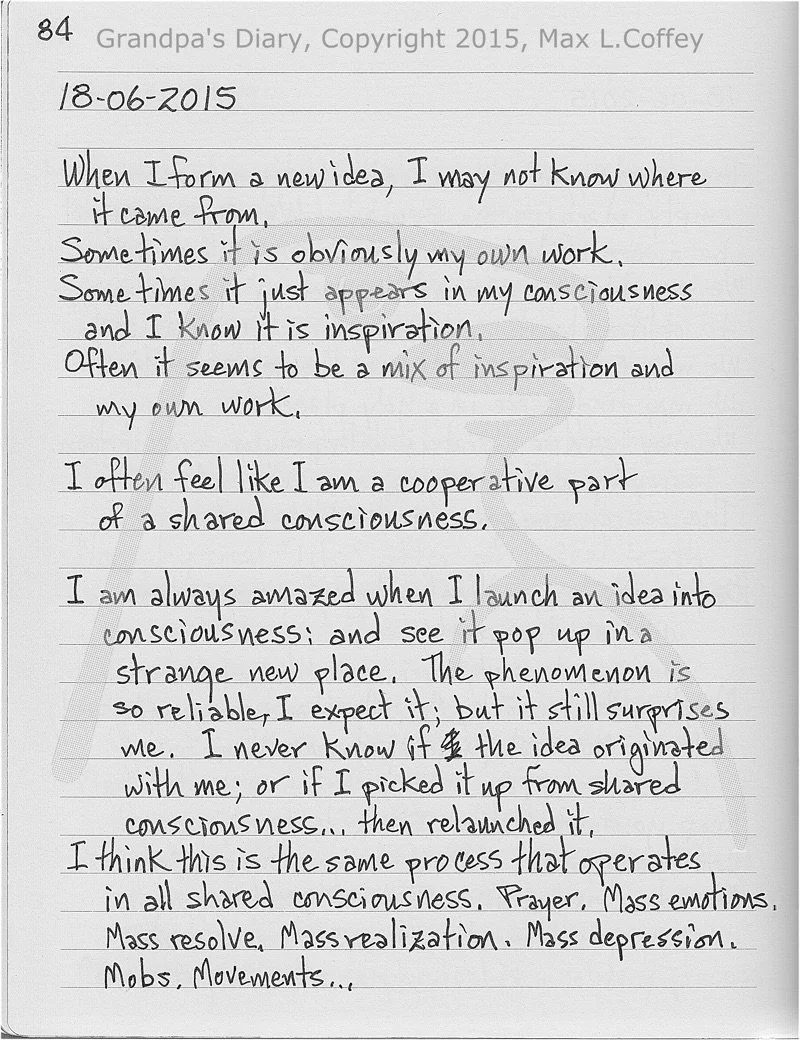 84
Grandpa's Diary, Copyright 2015, Max L.Coffey
18-06-2015
When I form a new idea, I may not know where
it came from.
Sometimes it is obviously my own work.
Sometimes it just appears in my consciousness
and I know it is inspiration.
Often it seems to be a mix of inspiration and
my own work.
I often feel like I am a cooperative part
of a shared consciousness.
I am always amazed when I launch an idea into
consciousness; and see it pop up in a
strange new place. The phenomenon is
so reliable, I expect it; but it still surprises
me. I never know if the idea originated
with me; or if I picked it up from shared
consciousness... then relaunched it.
I think this is the same process that operates
in all shared consciousness. Prayer. Mass emotions.
Mass resolve. Mass realization. Mass depression.
Mobs. Movements...